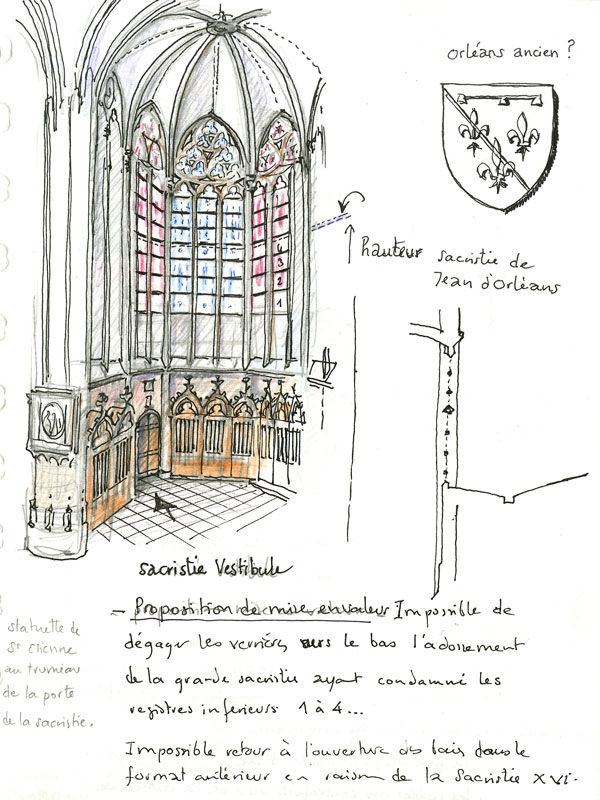 orléans ancien ?
hauteur
sacristie de
Jean d'Orléans
4
3
2
1
sacristie Vestibule
- Proposition de mise en valeur Impossible de
dégager les verrières vers le bas l'adossement
de la grande sacristie ayant condamné les
registres inférieurs 1 à 4...
Impossible retour à l'ouverture des baies dans le
format antérieur en raison de la Sacristie XVI.
statuette de
St Etienne
au trumeau
de la porte
de la sacristie.